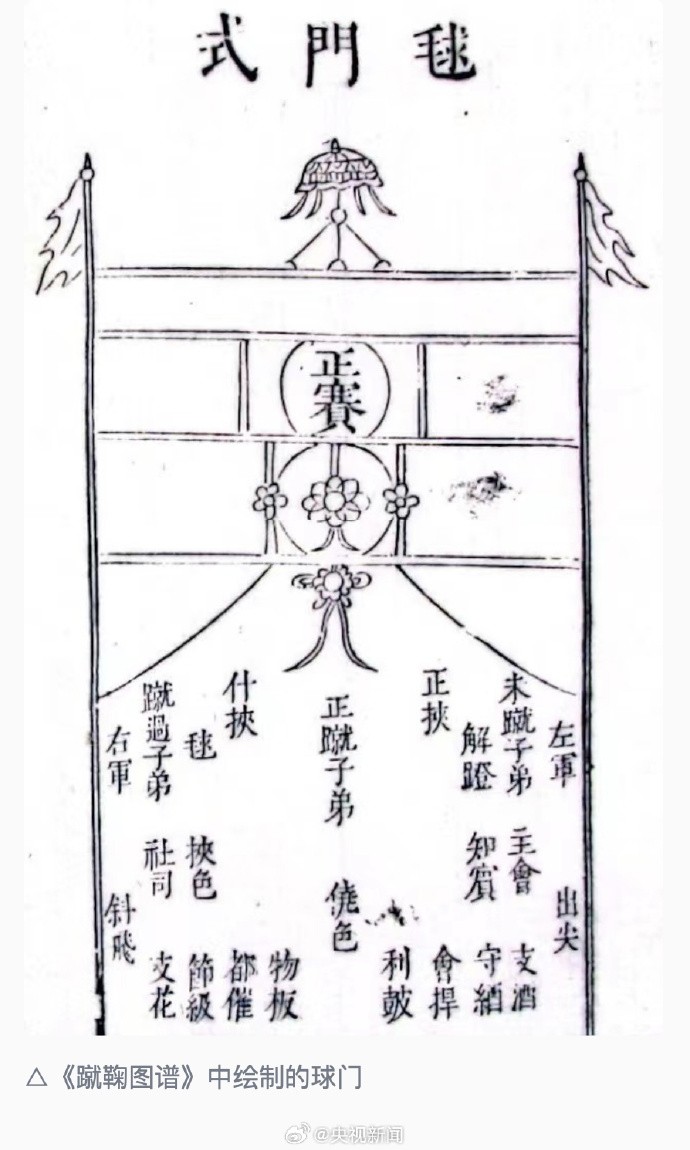 毬門式
正賽
左軍 出尖
未蹴子弟 主會 支酒
解蹬 知賓 守緬
正挾 會捍
利鼓
正蹴子弟 僥色
物板
什挾 都催
毬 挾色 節級
蹴過子弟 社司 支花
右軍 斜飛
△《蹴鞠图谱》中绘制的球门
@央视新闻